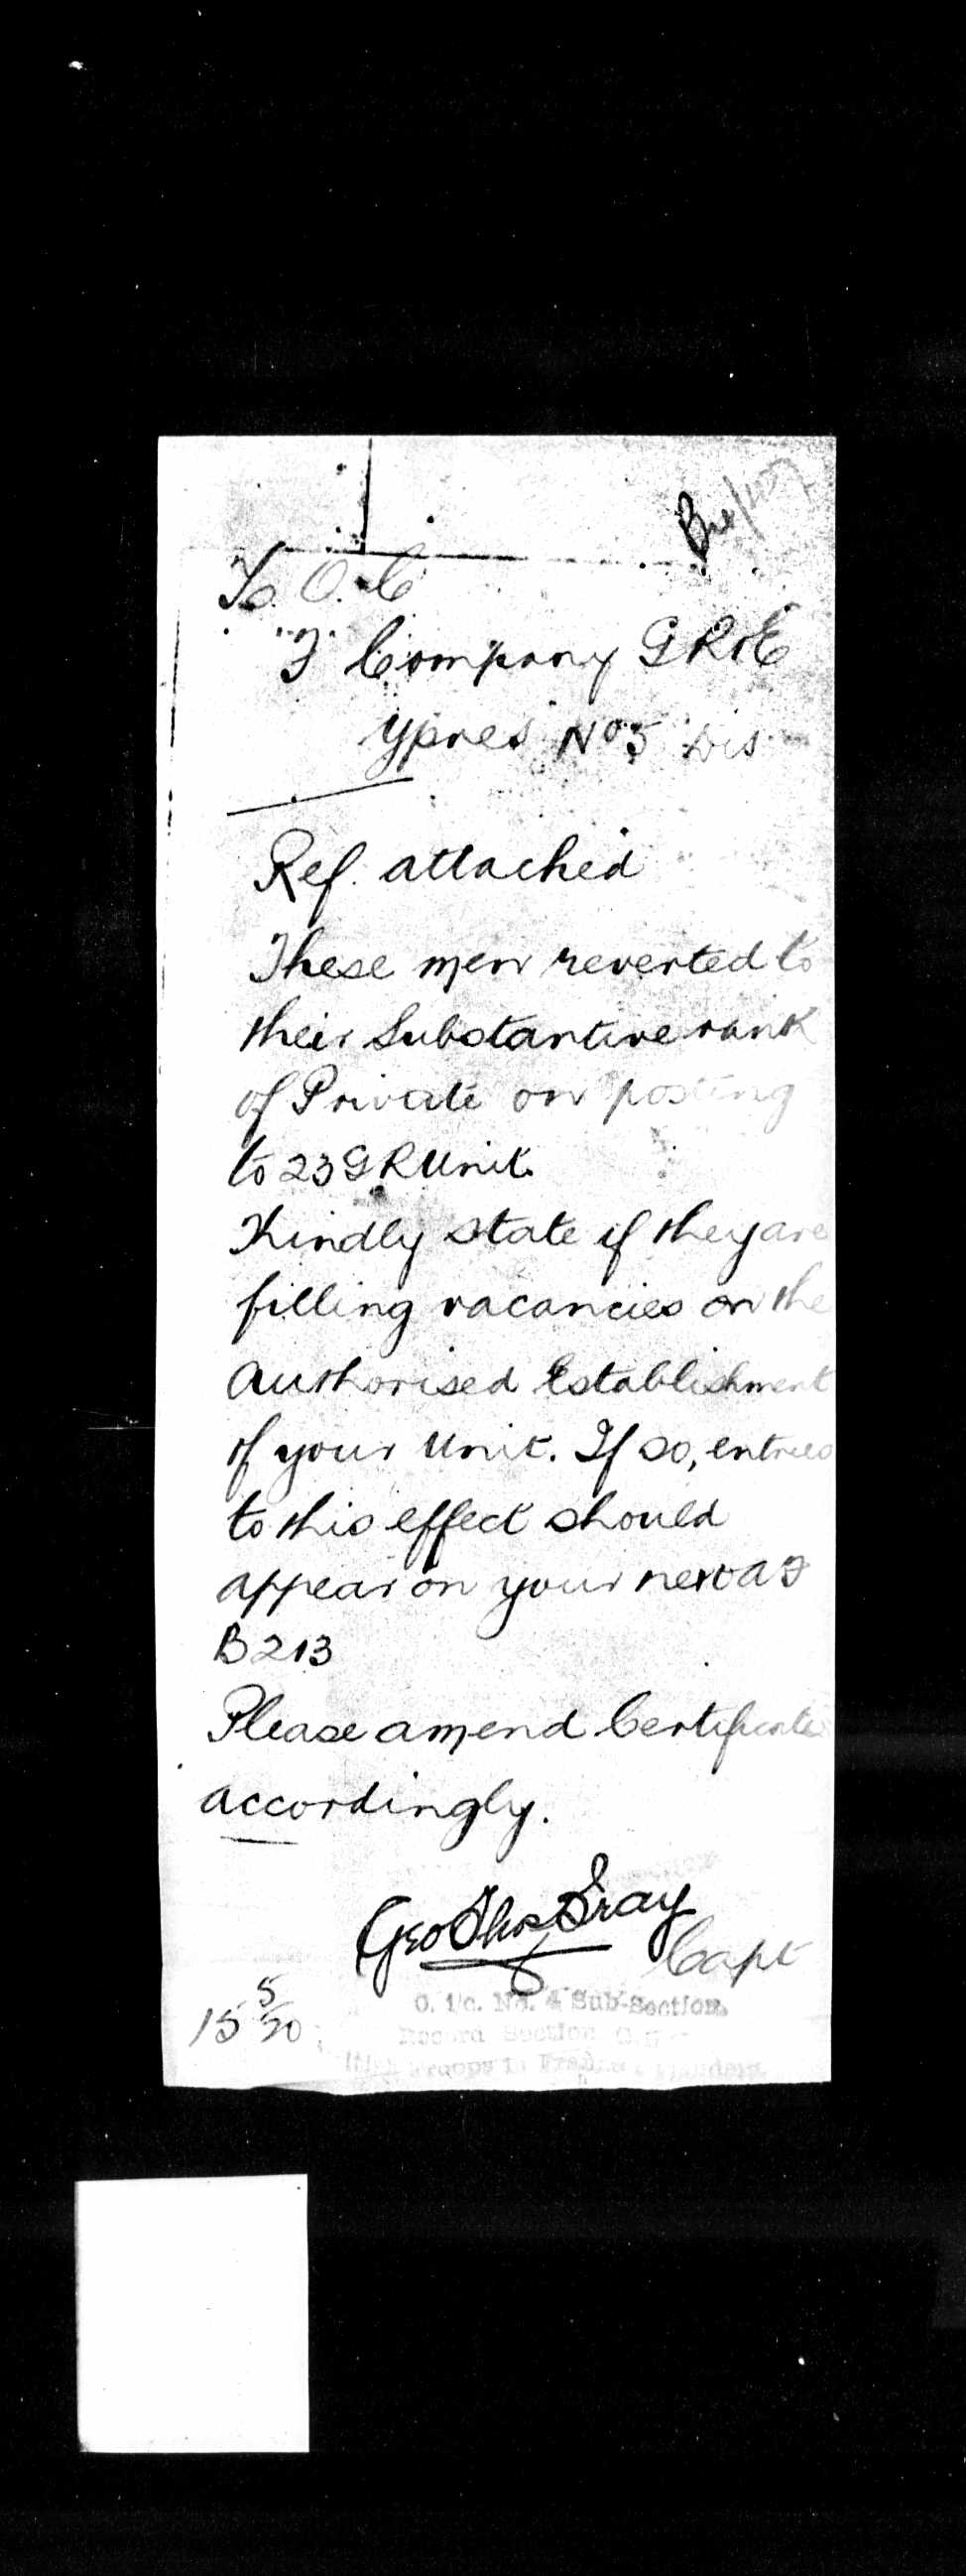 To. O. C
F Company G R & E
Ypres No 5 Dis
Ref. attached
These men reverted to
their Substantive rank
of Private on posting
to 23 G R Unit.
Kindly state if they are
filling vacancies on the
authorised Establishment
of your Unit. If so, entries
to this effect should
appear on your next A F
B 213
Please amend Certificate
accordingly.
Geo Thos Gray
Capt
15 5/20
O. i/c. No. 4 Sub-Section.
Record Section
Troops in France & Flanders.